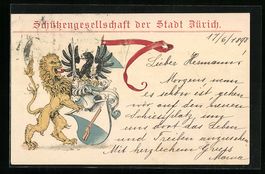 Schützengesellschaft der Stadt Zürich.
17/6/1897
Lieber Hermann!
Morgens wann
es schön ist, gehen
wir auf den neuen
Schiessplatz um
uns dort das Leben
und Treiben anzusehen
Mit herzlichem Gruss
Mama